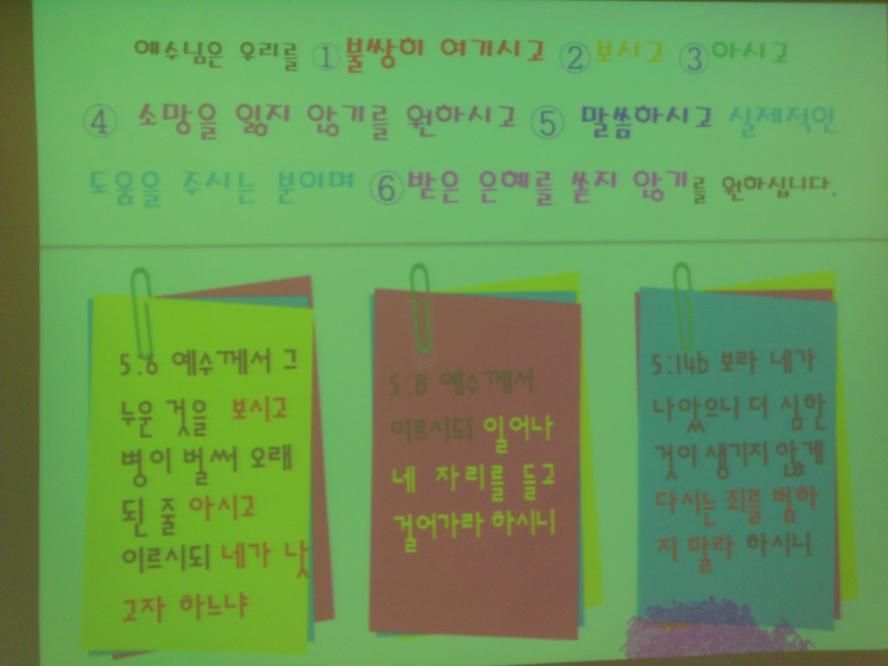 예수님은 우리를 ①불쌍히 여기시고 ②보시고 ③아시고
④ 소망을 잃지 않기를 원하시고 ⑤ 말씀하시고 실제적인
도움을 주시는 분이며 ⑥받은 은혜를 쏟지 않기를 원하십니다.
5:6 예수께서 그
누운 것을 보시고
병이 벌써 오래
된 줄 아시고
이르시되 네가 낫
고자 하느냐
5:8 예수께서
이르시되 일어나
네 자리를 들고
걸어가라 하시니
5:14b 보라 네가
나았으니 더 심한
것이 생기지 않게
다시는 죄를 범하
지 말라 하시니